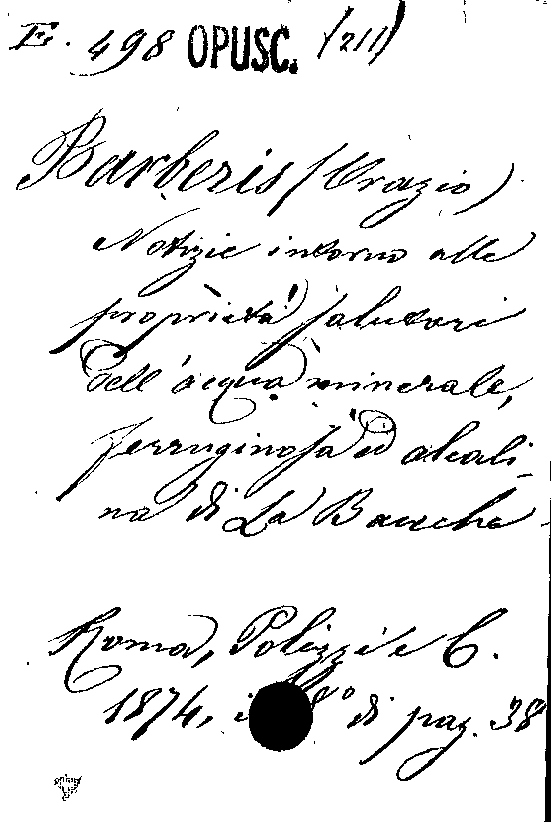 E. 498 OPUSC. (211)
Barberis (Orazio)
Notizie intorno alle
proprietà salutari
dell'acqua minerale,
ferruginosa ed alcali-
na di La Bauche
Roma, Polizzi e C.
1874. 8° di pag. 38